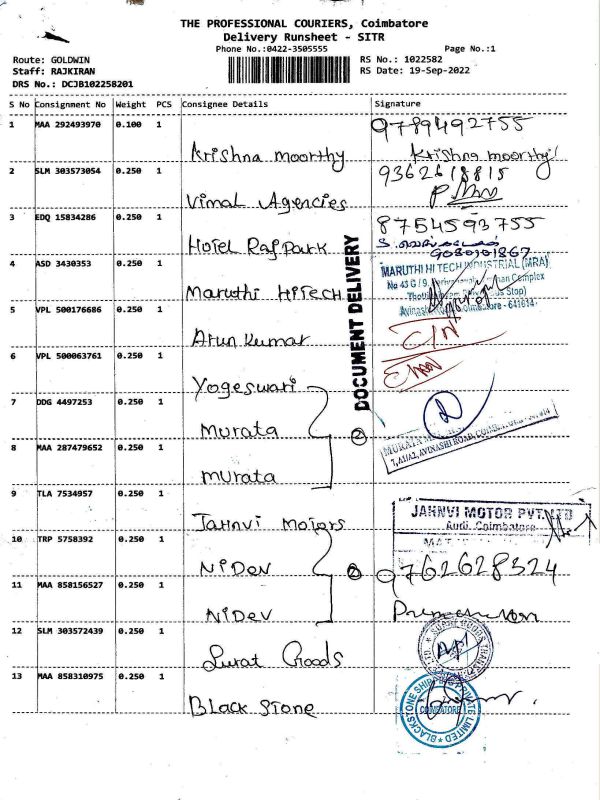 THE PROFESSIONAL COURIERS, Coimbatore
Delivery Runsheet - SITR
Phone No.:0422-3505555
Page No.:1
Route: GOLDWIN
RS No.: 1022582
Staff: RAJKIRAN
RS Date: 19-Sep-2022
DRS No.: DCJB102258201
S No Consignment No Weight PCS Consignee Details Signature
1 MAA 292493970 0.100 1
9789492755
Krishna moorthy Krishna moorthy
2 SLM 303573054 0.250 1
9362618815
Vimal Agencies
3 EDQ 15834286 0.250 1
8754593755
Hotel Raj Park
9080101867
4 ASD 3430353 0.250 1
MARUTHI HI TECH INDUSTRIAL (MRA)
Maruthi HiTech
5 VPL 500176686 0.250 1
Arun Kumar
6 VPL 500063761 0.250 1
Yogeswari
DOCUMENT DELIVERY
7 DDG 4497253 0.250 1
murata
②
8 MAA 287479652 0.250 1
murata
9 TLA 7534957 0.250 1
JAHNVI MOTOR PVT.LTD
Audi, Coimbatore
Jahnvi Motors
10 TRP 5758392 0.250 1
NiDev
9762628324
11 MAA 858156527 0.250 1
NiDev
12 SLM 303572439 0.250 1
Surat Goods
13 MAA 858310975 0.250 1
Black Stone
BLACKSTONE SHIPPING PRIVATE LIMITED
COIMBATORE